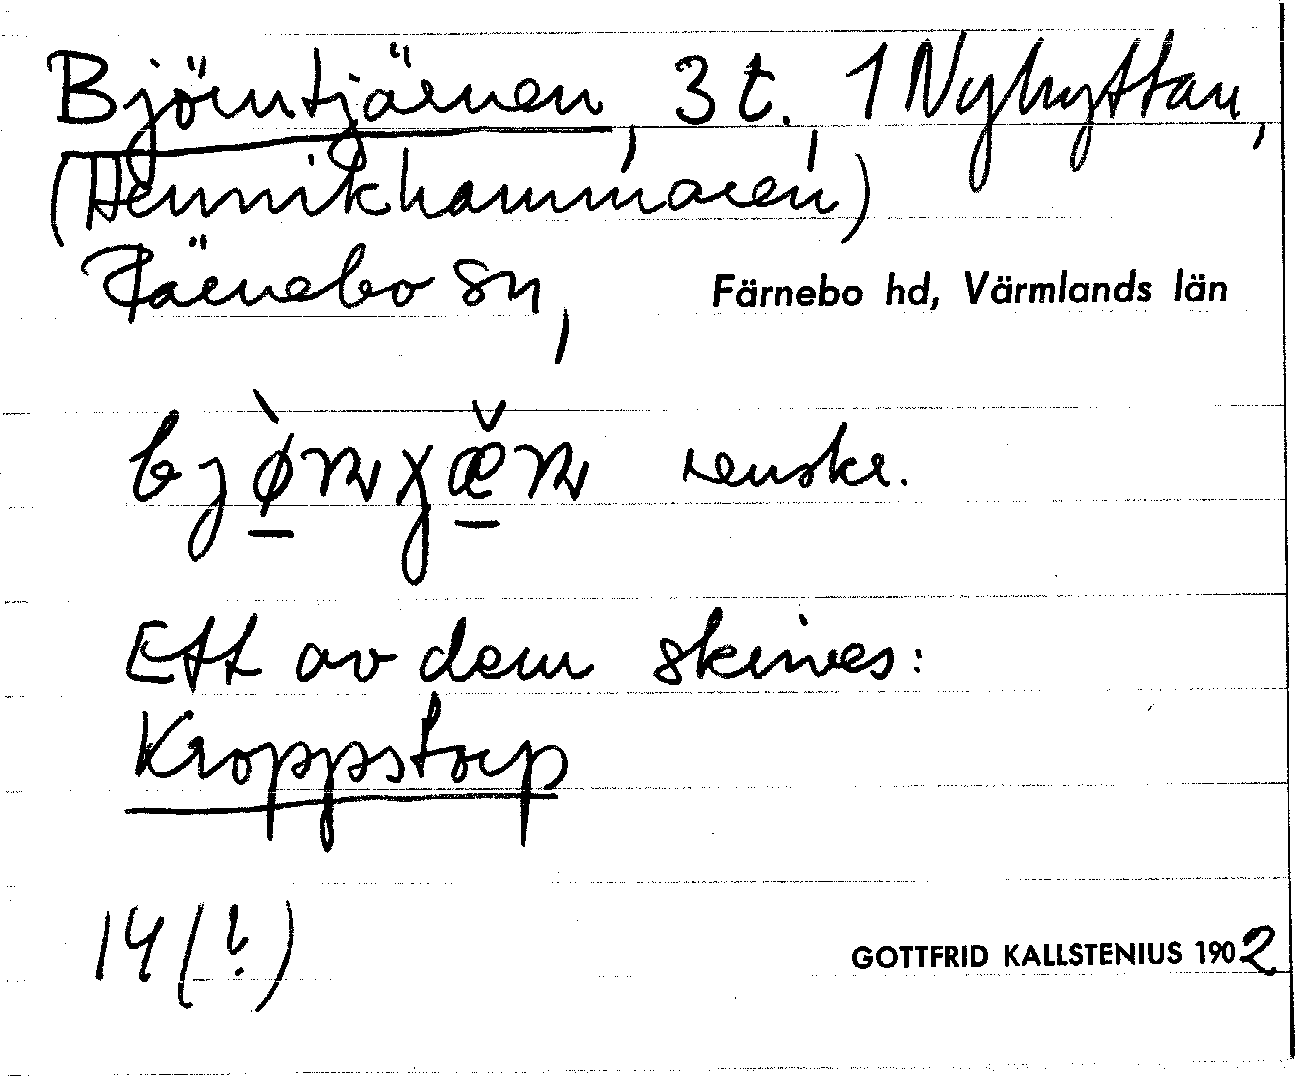 Björntjärnen, 3 t., 1 Nyhyttan,
(Hennikhammaren)
Färnebo sn,
Färnebo hd, Värmlands län
renskr.
Ett av dem skrives:
Kroppstorp
14 (?)
GOTTFRID KALLSTENIUS 1902